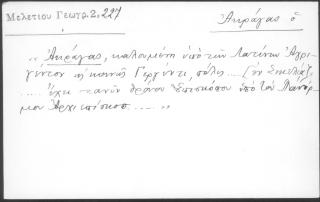 Μελετίου Γεωγρ. 2, 227
Ἀκράγας ὁ
" Ἀκράγας, καλουμένη ὑπὸ τῶν Λατίνων Ἀγρι
γέντον ἢ κοινῶς Γεργέντι, πόλις ... [ἐν Σικελίᾳ],
...... ἔχει θρόνον Ἐπισκόπου ὑπὸ τὸν Πανόρ
μου Ἀρχιεπίσκοπ..... "